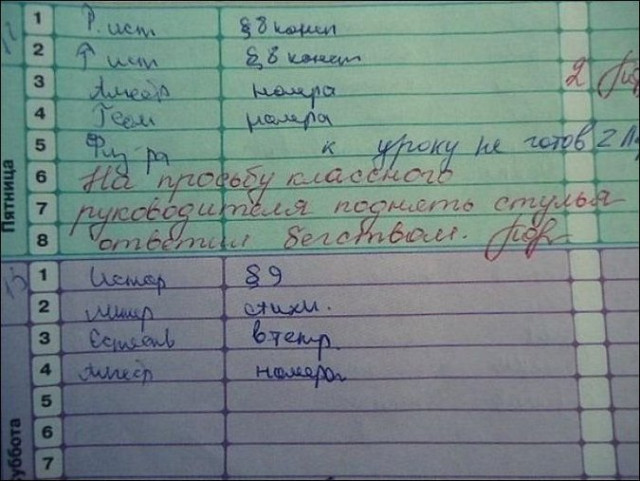 1 Р. ист § 8 консп
2 Р ист § 8 консп
3 Алгебр номера 2
4 Геом номера
5 Физ-ра к уроку не готов 2
6 На просьбу классного
7 руководителя поднять стулья
8 ответил бегством.
Пятница
1 Истор § 9
2 Литер стихи.
3 Естеств в тетр.
4 Алгебр номера
5
6
7
суббота